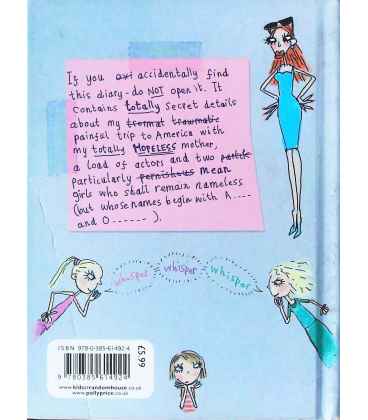 If you axi accidentally find
this diary - do NOT open it. It
contains totally secret details
about my tromat traumatic
painful trip to America with
my totally HOPELESS mother,
a load of actors and two partik
particularly pernishous mean
girls who shall remain nameless
(but whose names begin with A----
and O------).
whisper whisper whisper
£5.99
ISBN 978-0-385-61492-4
9 780385 614924
www.kidsatrandomhouse.co.uk
www.pollyprice.co.uk